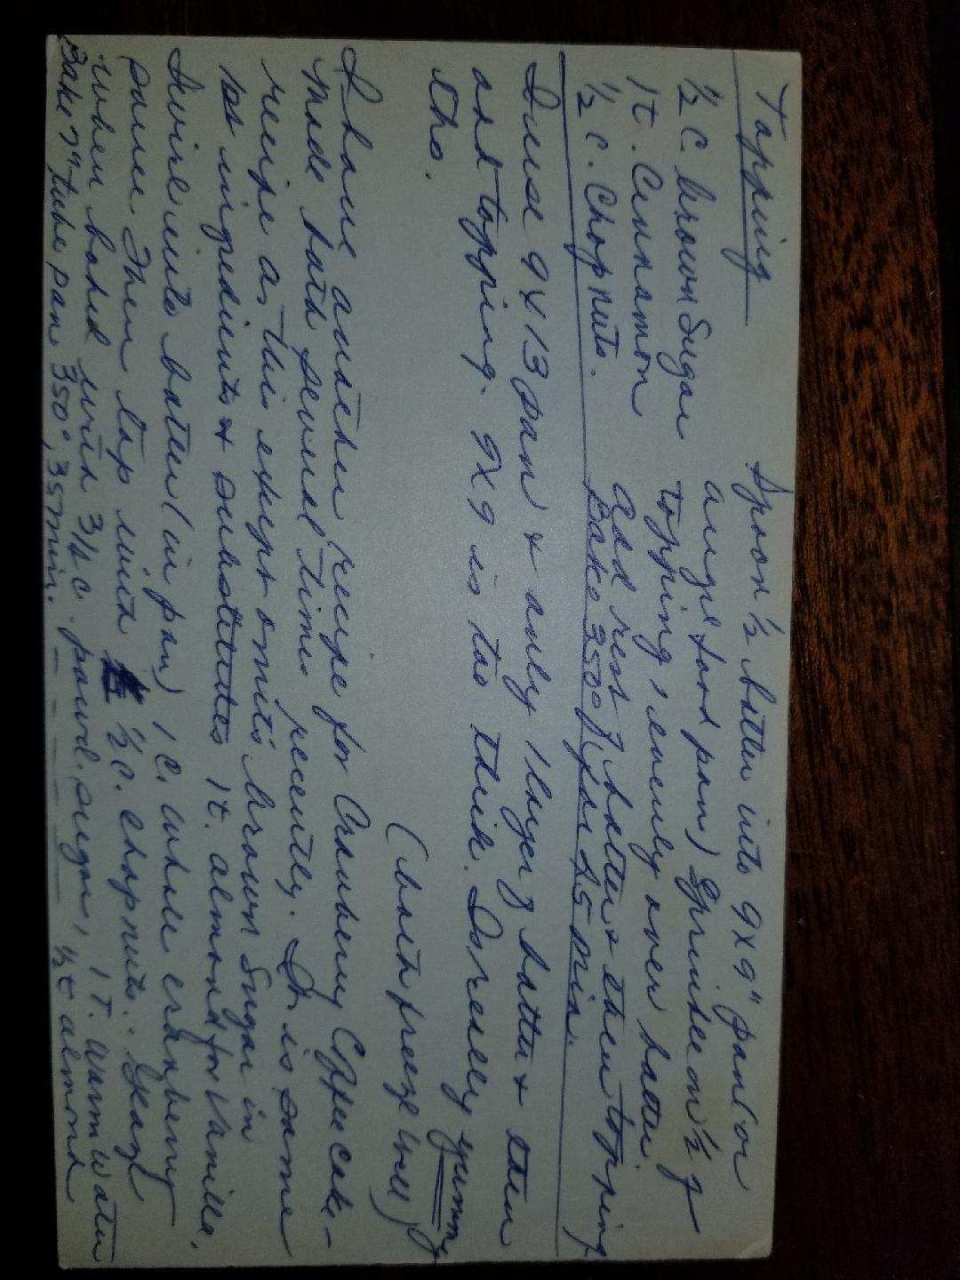 Topping
½ C. brown Sugar
1t. Cinnamon
½ C. Chop nuts.
Spoon ½ batter into 9x9" pan (or
angel food pan) Sprinkle on ½ of
topping, evenly over batter
add rest of batter & then topping
Bake 350° for 45 min.
I use 9x13 pan & only 1 layer of batter & then
and topping. 9x9 is too thick. Is really yummy
tho.
(both freeze well)
I have another recipe for Cranberry Coffee cake-
made both several times recently. It is same
recipe as this except omits brown sugar in
as ingredients & substitutes 1t. almond for Vanilla.
Swirl into batter (in pan) 1 C. whole cranberry
sauce Then top with ½ C. chop nuts. Glaze
when baked with 3/4 C. powd. sugar, 1 T. warm water
Bake in tube pan 350°, 35 min. ½ t almond